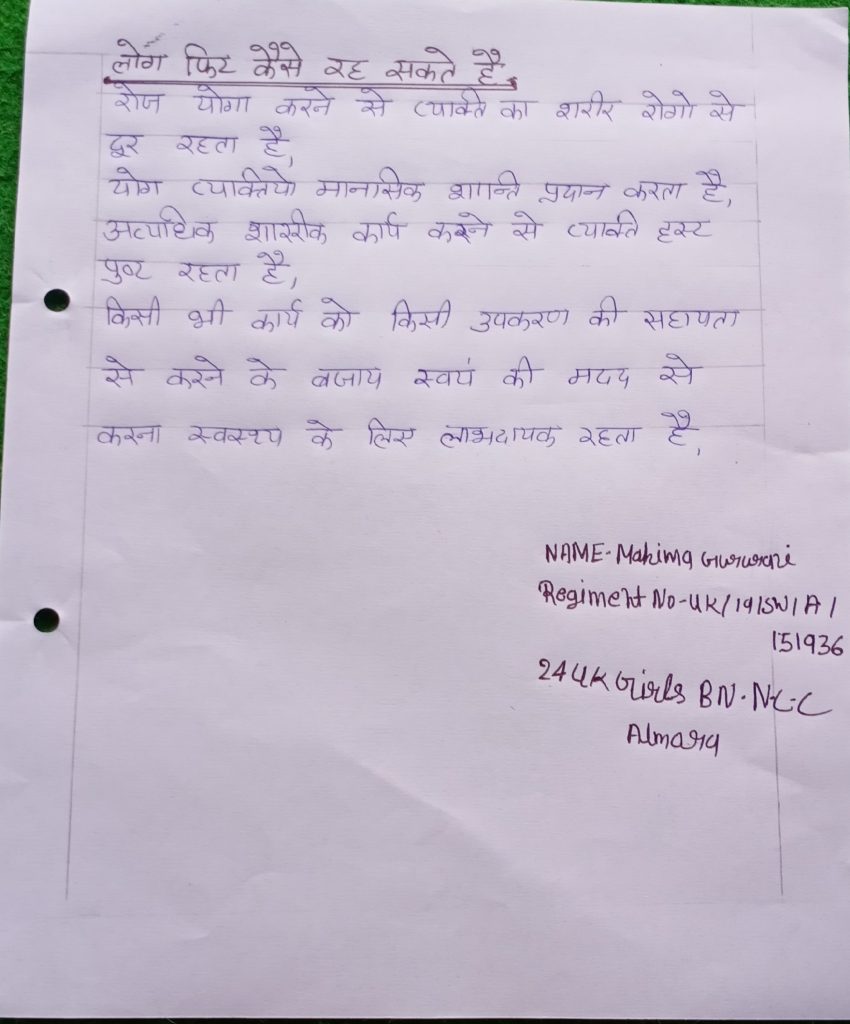 लोग फिट कैसे रह सकते है.
रोज योगा करने से व्यक्ति का शरीर रोगो से
दूर रहता है,
योग व्यक्तियो मानासिक शान्ति प्रदान करता है,
अत्याधिक शारिरीक कार्य करने से व्यक्ति हस्ट
पुष्ट रहता है,
किसी भी कार्य को किसी उपकरण की सहायता
से करने के बजाय स्वयं की मदद से
करना स्वस्थ्य के लिए लाभदायक रहता है,
NAME- Mahima Gururani
Regiment No-UK/19/SW/A/
151936
24 UK Girls BN. N.C.C
Almora